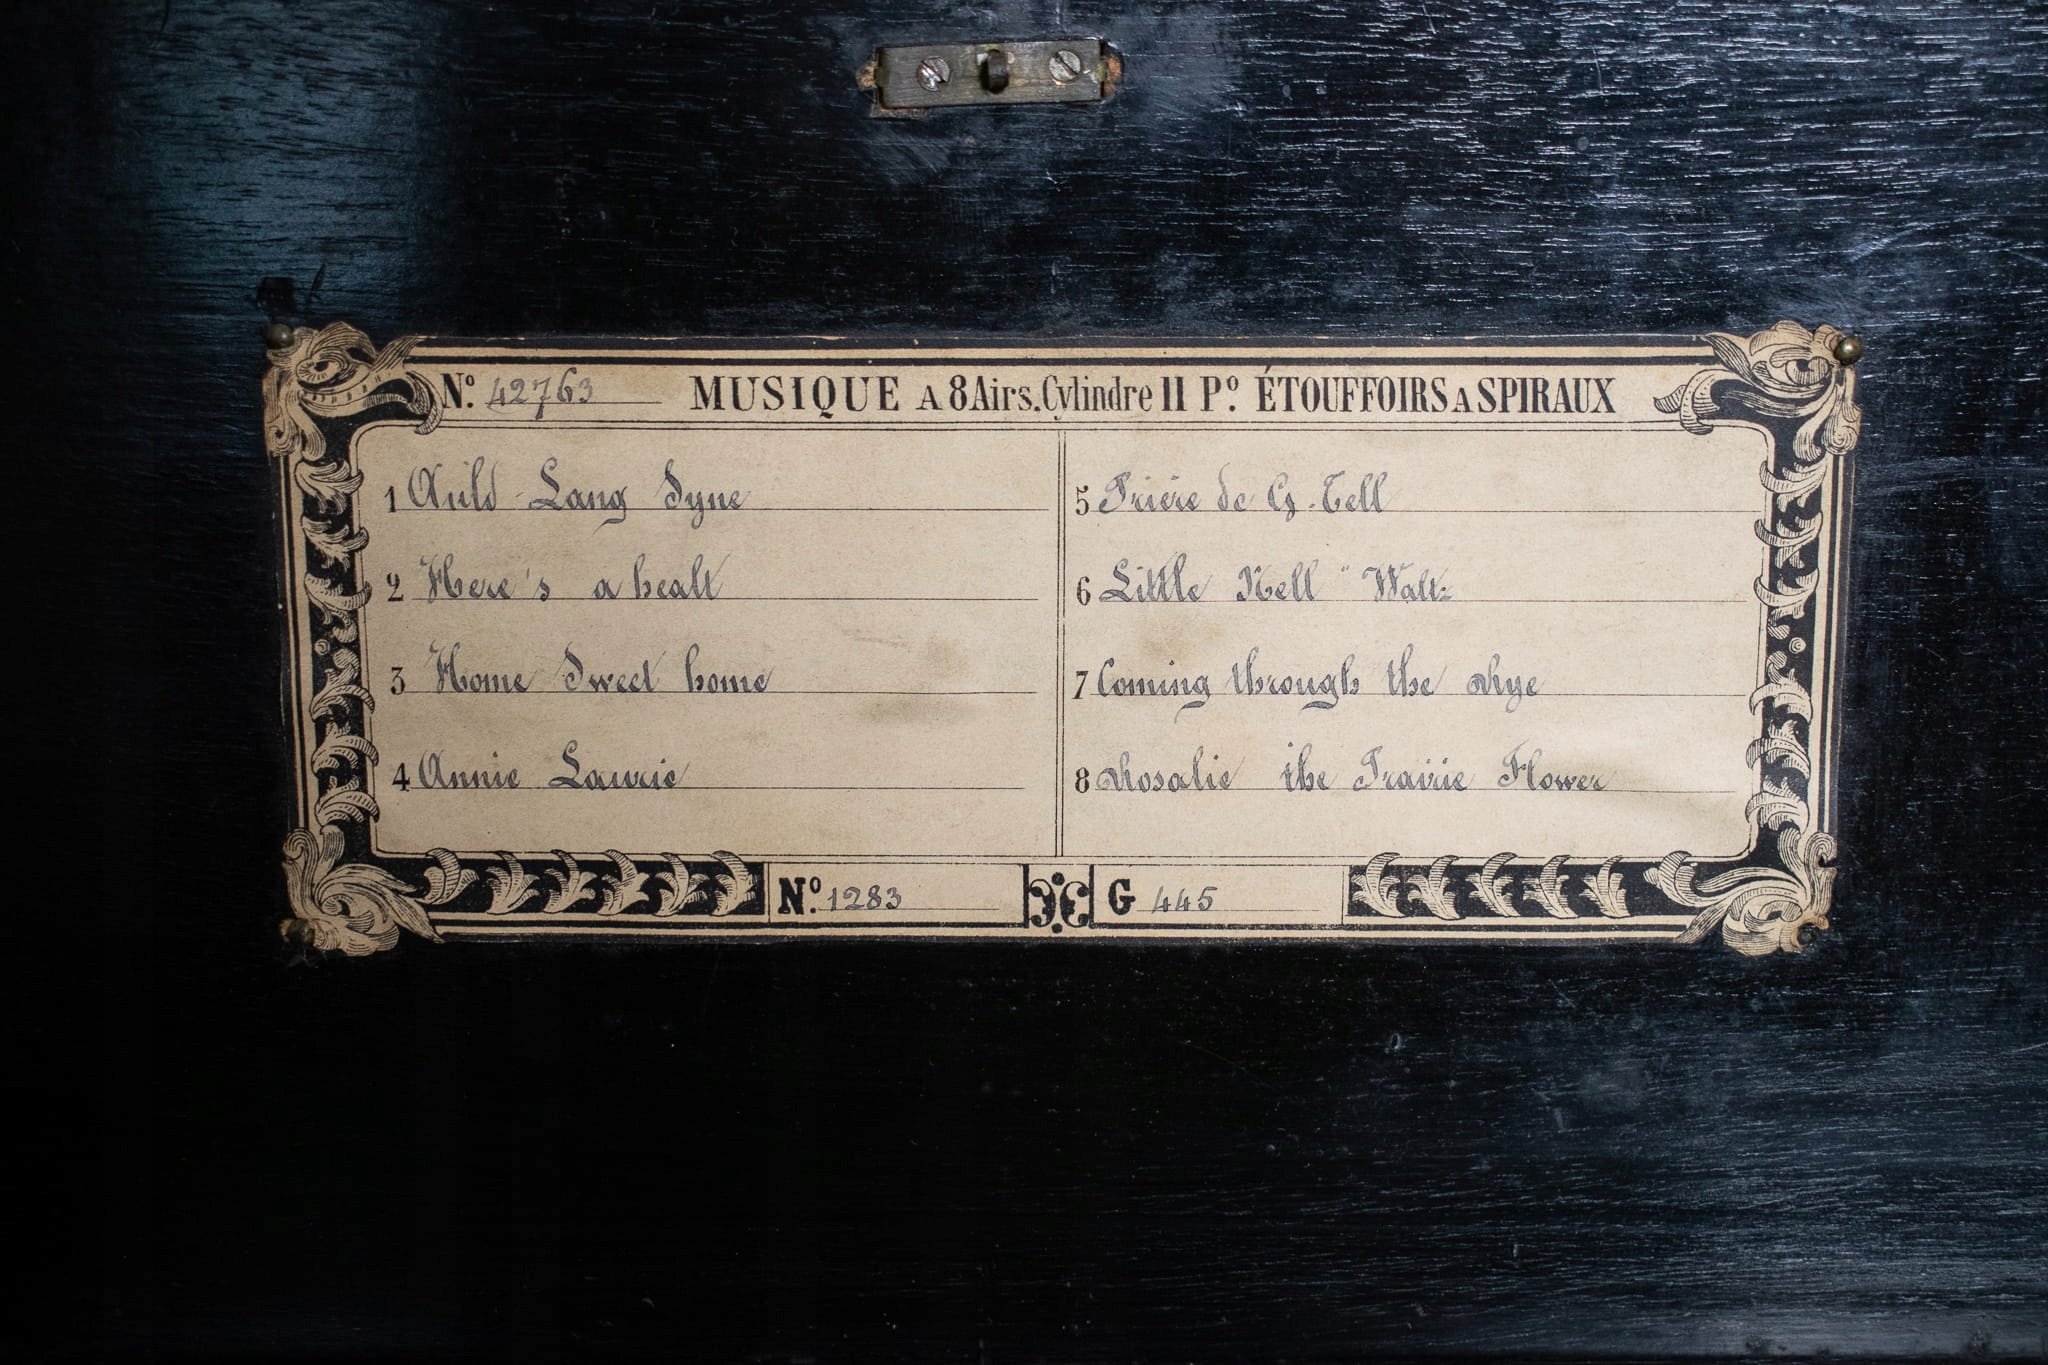 Nº. 42763 MUSIQUE A 8 Airs. Cylindre 11 Pº. ÉTOUFFOIRS A SPIRAUX
1 Auld Lang Syne
2 Here's a healt
3 Home Sweet home
4 Annie Lawrie
5 Prière de G. Tell
6 Little Nell " Waltz
7 Coming through the Rye
8 Rosalie the Prairie Flower
Nº. 1283
G 445